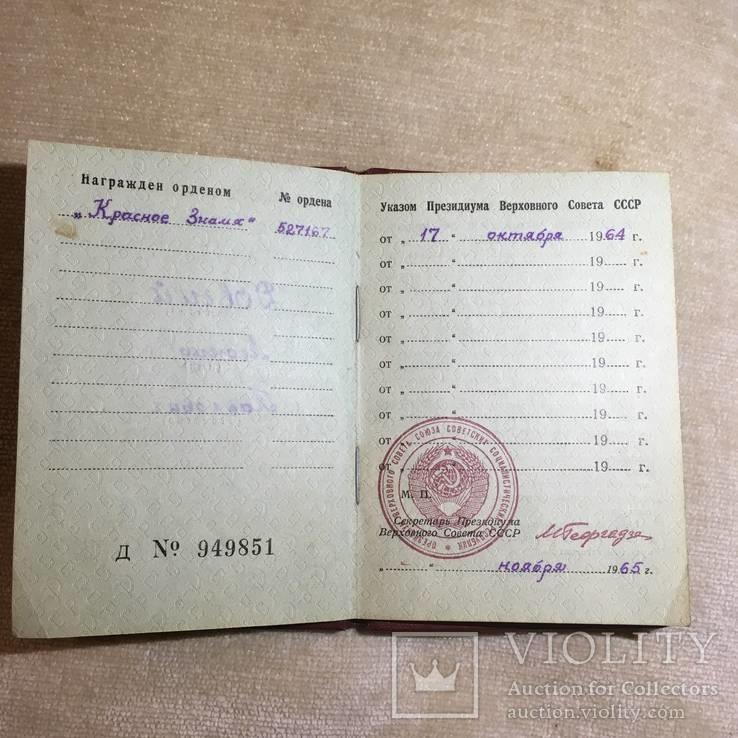 Награжден орденом
№ ордена
„Красное Знамя“ 527167
Д № 949851
Указом Президиума Верховного Совета СССР
от „ 17 “ октября 1964 г.
от „ “ 19 г.
от „ “ 19 г.
от „ “ 19 г.
от „ “ 19 г.
от „ “ 19 г.
от „ “ 19 г.
от „ “ 19 г.
от „ “ 19 г.
от „ “ 19 г.
М. П.
Секретарь Президиума
Верховного Совета СССР
МГеоргадзе
„ “ ноября 1965 г.
VIOLITY
Auction for Collectors
auction.violity.com